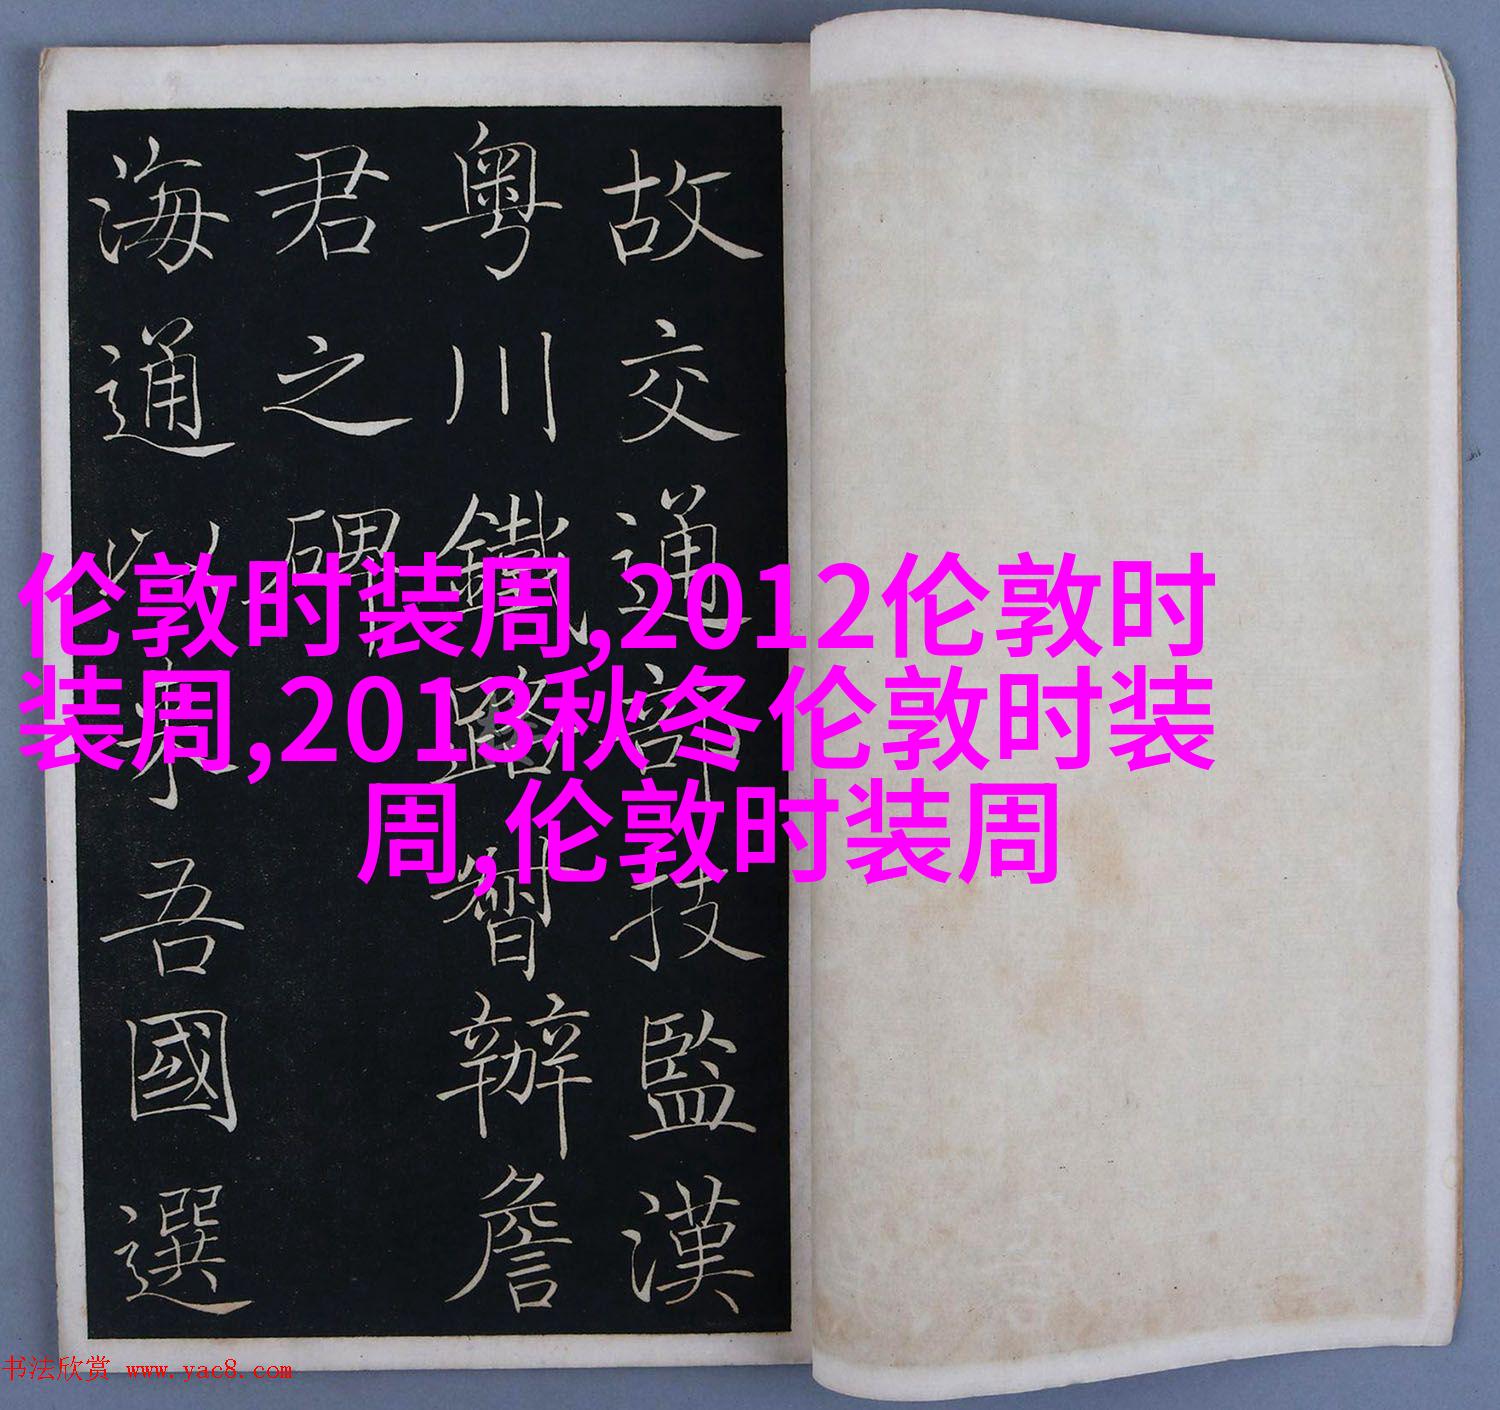 故交通部技監漢
粵川鐵路督辦詹
君之碑
海通以來吾國選
伦敦时装周,2012伦敦时
装周,2013秋冬伦敦时装
周,伦敦时装周
书法欣赏 www.yac8.com